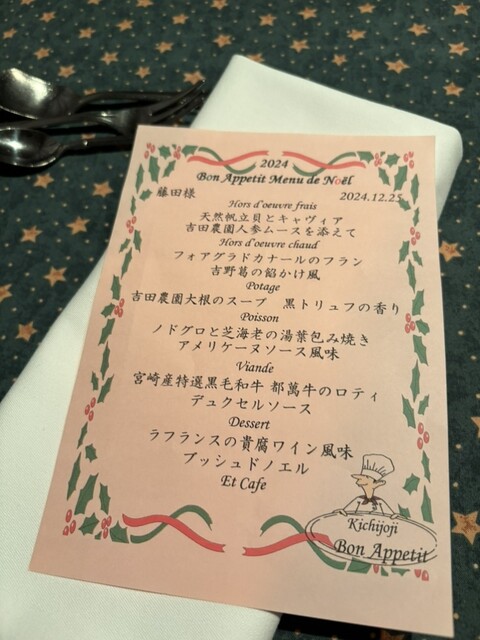 2024
Bon Appetit Menu de Noël
藤田様
2024.12.25
Hors d'oeuvre frais
天然帆立貝とキャヴィア
吉田農園人参ムースを添えて
Hors d'oeuvre chaud
フォアグラドカナールのフラン
吉野葛の餡かけ風
Potage
吉田農園大根のスープ 黒トリュフの香り
Poisson
ノドグロと芝海老の湯葉包み焼き
アメリケーヌソース風味
Viande
宮崎産特選黒毛和牛 都萬牛のロティ
デュクセルソース
Dessert
ラフランスの貴腐ワイン風味
ブッシュドノエル
Et Cafe
Kichijoji
Bon Appetit